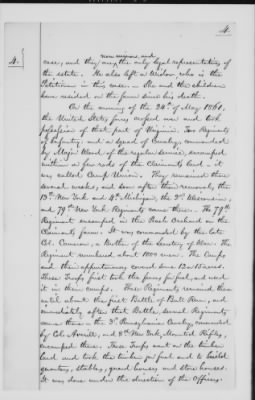 4.
4.
now survives and
case, and they are the only legal representatives of
the estate. He also left a Widow, who is the
Petitioner in this case. She and the children
have resided on the farm since his death.
On the morning of the 24th of May 1861,
the United States forces crossed over and took
possession of that part of Virginia. Two Regiments
of Infantry, and a squad of Cavalry, commanded
by Major Wood, of the regular service, encamped
within a few rods of the Claimants land - it
was called Camp Union. They remained there
several weeks, and soon after their removal, the
13th New York and 4th Michigan, the 2d Wisconsin
and 79th New York Regiments came there. The 79th
Regiment encamped in the Peach Orchard on the
Claimants farm. It was commanded by the late
Col. Cameron, a Brother of the Secretary of War. The
Regiment numbered about 1000 men. The Camps
and their appurtenances covered some 12 or 15 acres.
These Troops first took the fences for fuel, and used
it in their camps. These Regiments remained there
until about the first Battle of Bull Run, and
immediately after that Battle, several Regiments
came there - the 3d Pennsylvania Cavalry, commanded
by Col. Averill, and 8th New York, Mounted Rifles,
encamped there. These Troops went on the timber
land and took the timber for fuel and to build
quarters, stables, guard houses and store houses.
It was done under the direction of the Officers.